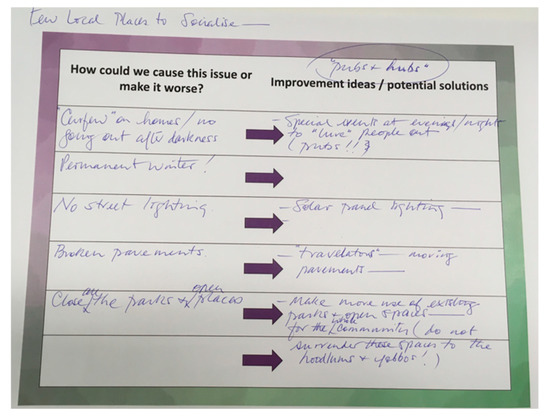 Few Local Places to Socialise —
"pubs + hubs"
How could we cause this issue or
make it worse?
Improvement ideas / potential solutions
"Curfew" on homes/no
going out after darkness
- Special events at evenings/night
to "lure" people out
(pubs !!)
Permanent winter!
No street lighting
- Solar panel lighting —
-
Broken pavements
- "travelators" — moving
pavements —
Close all the parks & open places
- Make more use of existing
parks & open spaces —
for the whole community (do not
surrender these spaces to the
hoodlums & yobbos!)